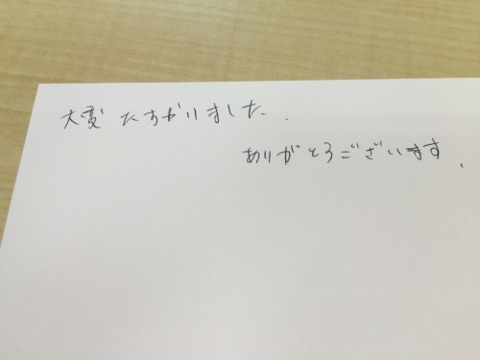 大変たすかりました.
ありがとうございます.